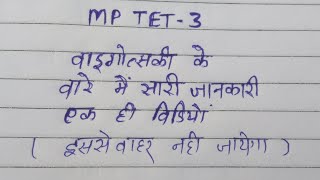 MP TET-3
वाइगोत्सकी के
वारे मैं सारी जानकारी
एक ही विडियों
( इससे वाहर नही जायेगा )